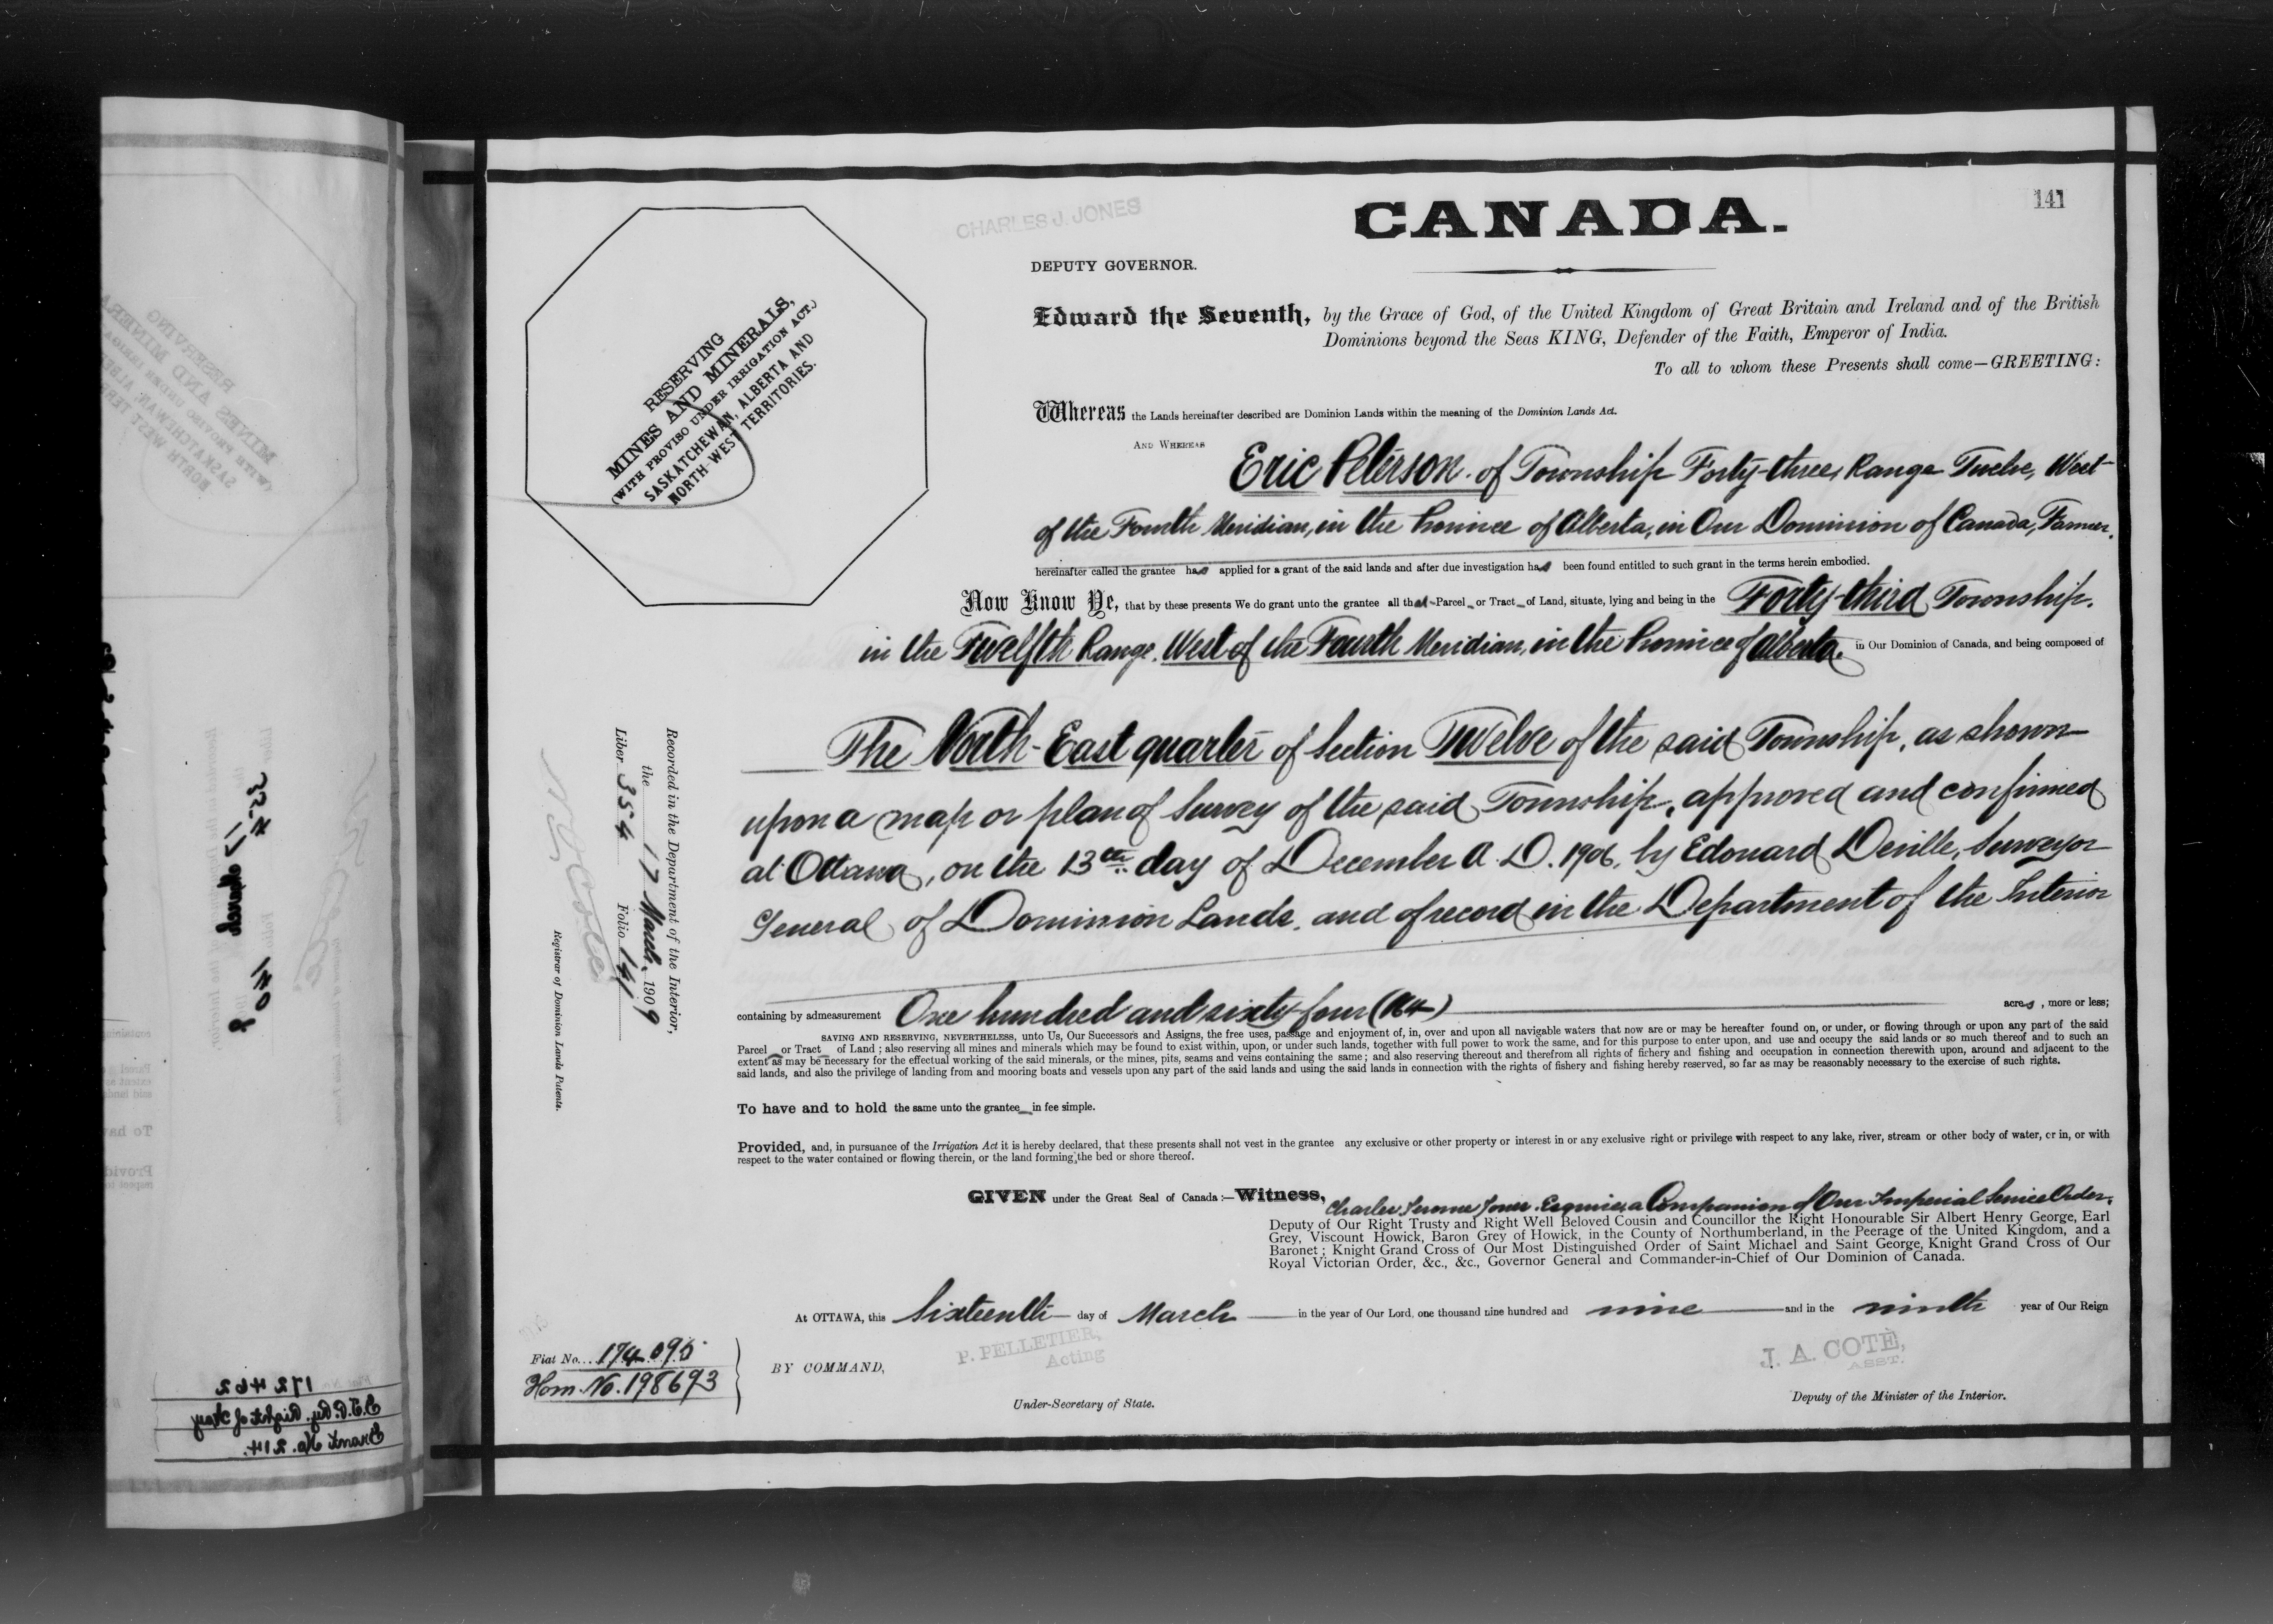 141
CHARLES J. JONES
CANADA.
DEPUTY GOVERNOR.
Edward the Seventh, by the Grace of God, of the United Kingdom of Great Britain and Ireland and of the British
Dominions beyond the Seas KING, Defender of the Faith, Emperor of India.
To all to whom these Presents shall come—GREETING:
RESERVING
MINES AND MINERALS,
(WITH PROVISO UNDER IRRIGATION ACT.)
SASKATCHEWAN, ALBERTA AND
NORTH-WEST TERRITORIES.
Whereas the Lands hereinafter described are Dominion Lands within the meaning of the Dominion Lands Act.
AND WHEREAS
Eric Peterson of Township Forty-three, Range Twelve, West
of the Fourth Meridian, in the Province of Alberta, in Our Dominion of Canada, Farmer,
hereinafter called the grantee has applied for a grant of the said lands and after due investigation has been found entitled to such grant in the terms herein embodied.
Now Know Ye, that by these presents We do grant unto the grantee all that Parcel or Tract of Land, situate, lying and being in the Forty-third Township,
in the Twelfth Range, West of the Fourth Meridian, in the Province of Alberta, in Our Dominion of Canada, and being composed of
The North-East quarter of Section Twelve of the said Township, as shown
upon a map or plan of Survey of the said Township, approved and confirmed
at Ottawa, on the 13th day of December A.D. 1906, by Edouard Deville, Surveyor
General of Dominion Lands, and of record in the Department of the Interior
Recorded in the Department of the Interior,
the 17 March, 1909
Liber 354 Folio 141
Registrar of Dominion Lands Patents.
containing by admeasurement One hundred and sixty-four (164) acres, more or less;
SAVING AND RESERVING, NEVERTHELESS, unto Us, Our Successors and Assigns, the free uses, passage and enjoyment of, in, over and upon all navigable waters that now are or may be hereafter found on, or under, or flowing through or upon any part of the said
Parcel or Tract of Land; also reserving all mines and minerals which may be found to exist within, upon, or under such lands, together with full power to work the same, and for this purpose to enter upon, and use and occupy the said lands or so much thereof and to such an
extent as may be necessary for the effectual working of the said minerals, or the mines, pits, seams and veins containing the same; and also reserving thereout and therefrom all rights of fishery and fishing and occupation in connection therewith upon, around and adjacent to the
said lands, and also the privilege of landing from and mooring boats and vessels upon any part of the said lands and using the said lands in connection with the rights of fishery and fishing hereby reserved, so far as may be reasonably necessary to the exercise of such rights.
To have and to hold the same unto the grantee in fee simple.
Provided, and, in pursuance of the Irrigation Act it is hereby declared, that these presents shall not vest in the grantee any exclusive or other property or interest in or any exclusive right or privilege with respect to any lake, river, stream or other body of water, or in, or with
respect to the water contained or flowing therein, or the land forming the bed or shore thereof.
GIVEN under the Great Seal of Canada:—Witness, Charles Jerome Jones, Esquire, a Companion of Our Imperial Service Order,
Deputy of Our Right Trusty and Right Well Beloved Cousin and Councillor the Right Honourable Sir Albert Henry George, Earl
Grey, Viscount Howick, Baron Grey of Howick, in the County of Northumberland, in the Peerage of the United Kingdom, and a
Baronet; Knight Grand Cross of Our Most Distinguished Order of Saint Michael and Saint George, Knight Grand Cross of Our
Royal Victorian Order, &c., &c., Governor General and Commander-in-Chief of Our Dominion of Canada.
At OTTAWA, this Sixteenth day of March in the year of Our Lord, one thousand nine hundred and nine and in the ninth year of Our Reign
Fiat No. 174095
Hom. No. 198693
BY COMMAND,
P. PELLETIER,
Acting
Under-Secretary of State.
J. A. COTÉ,
ASST.
Deputy of the Minister of the Interior.